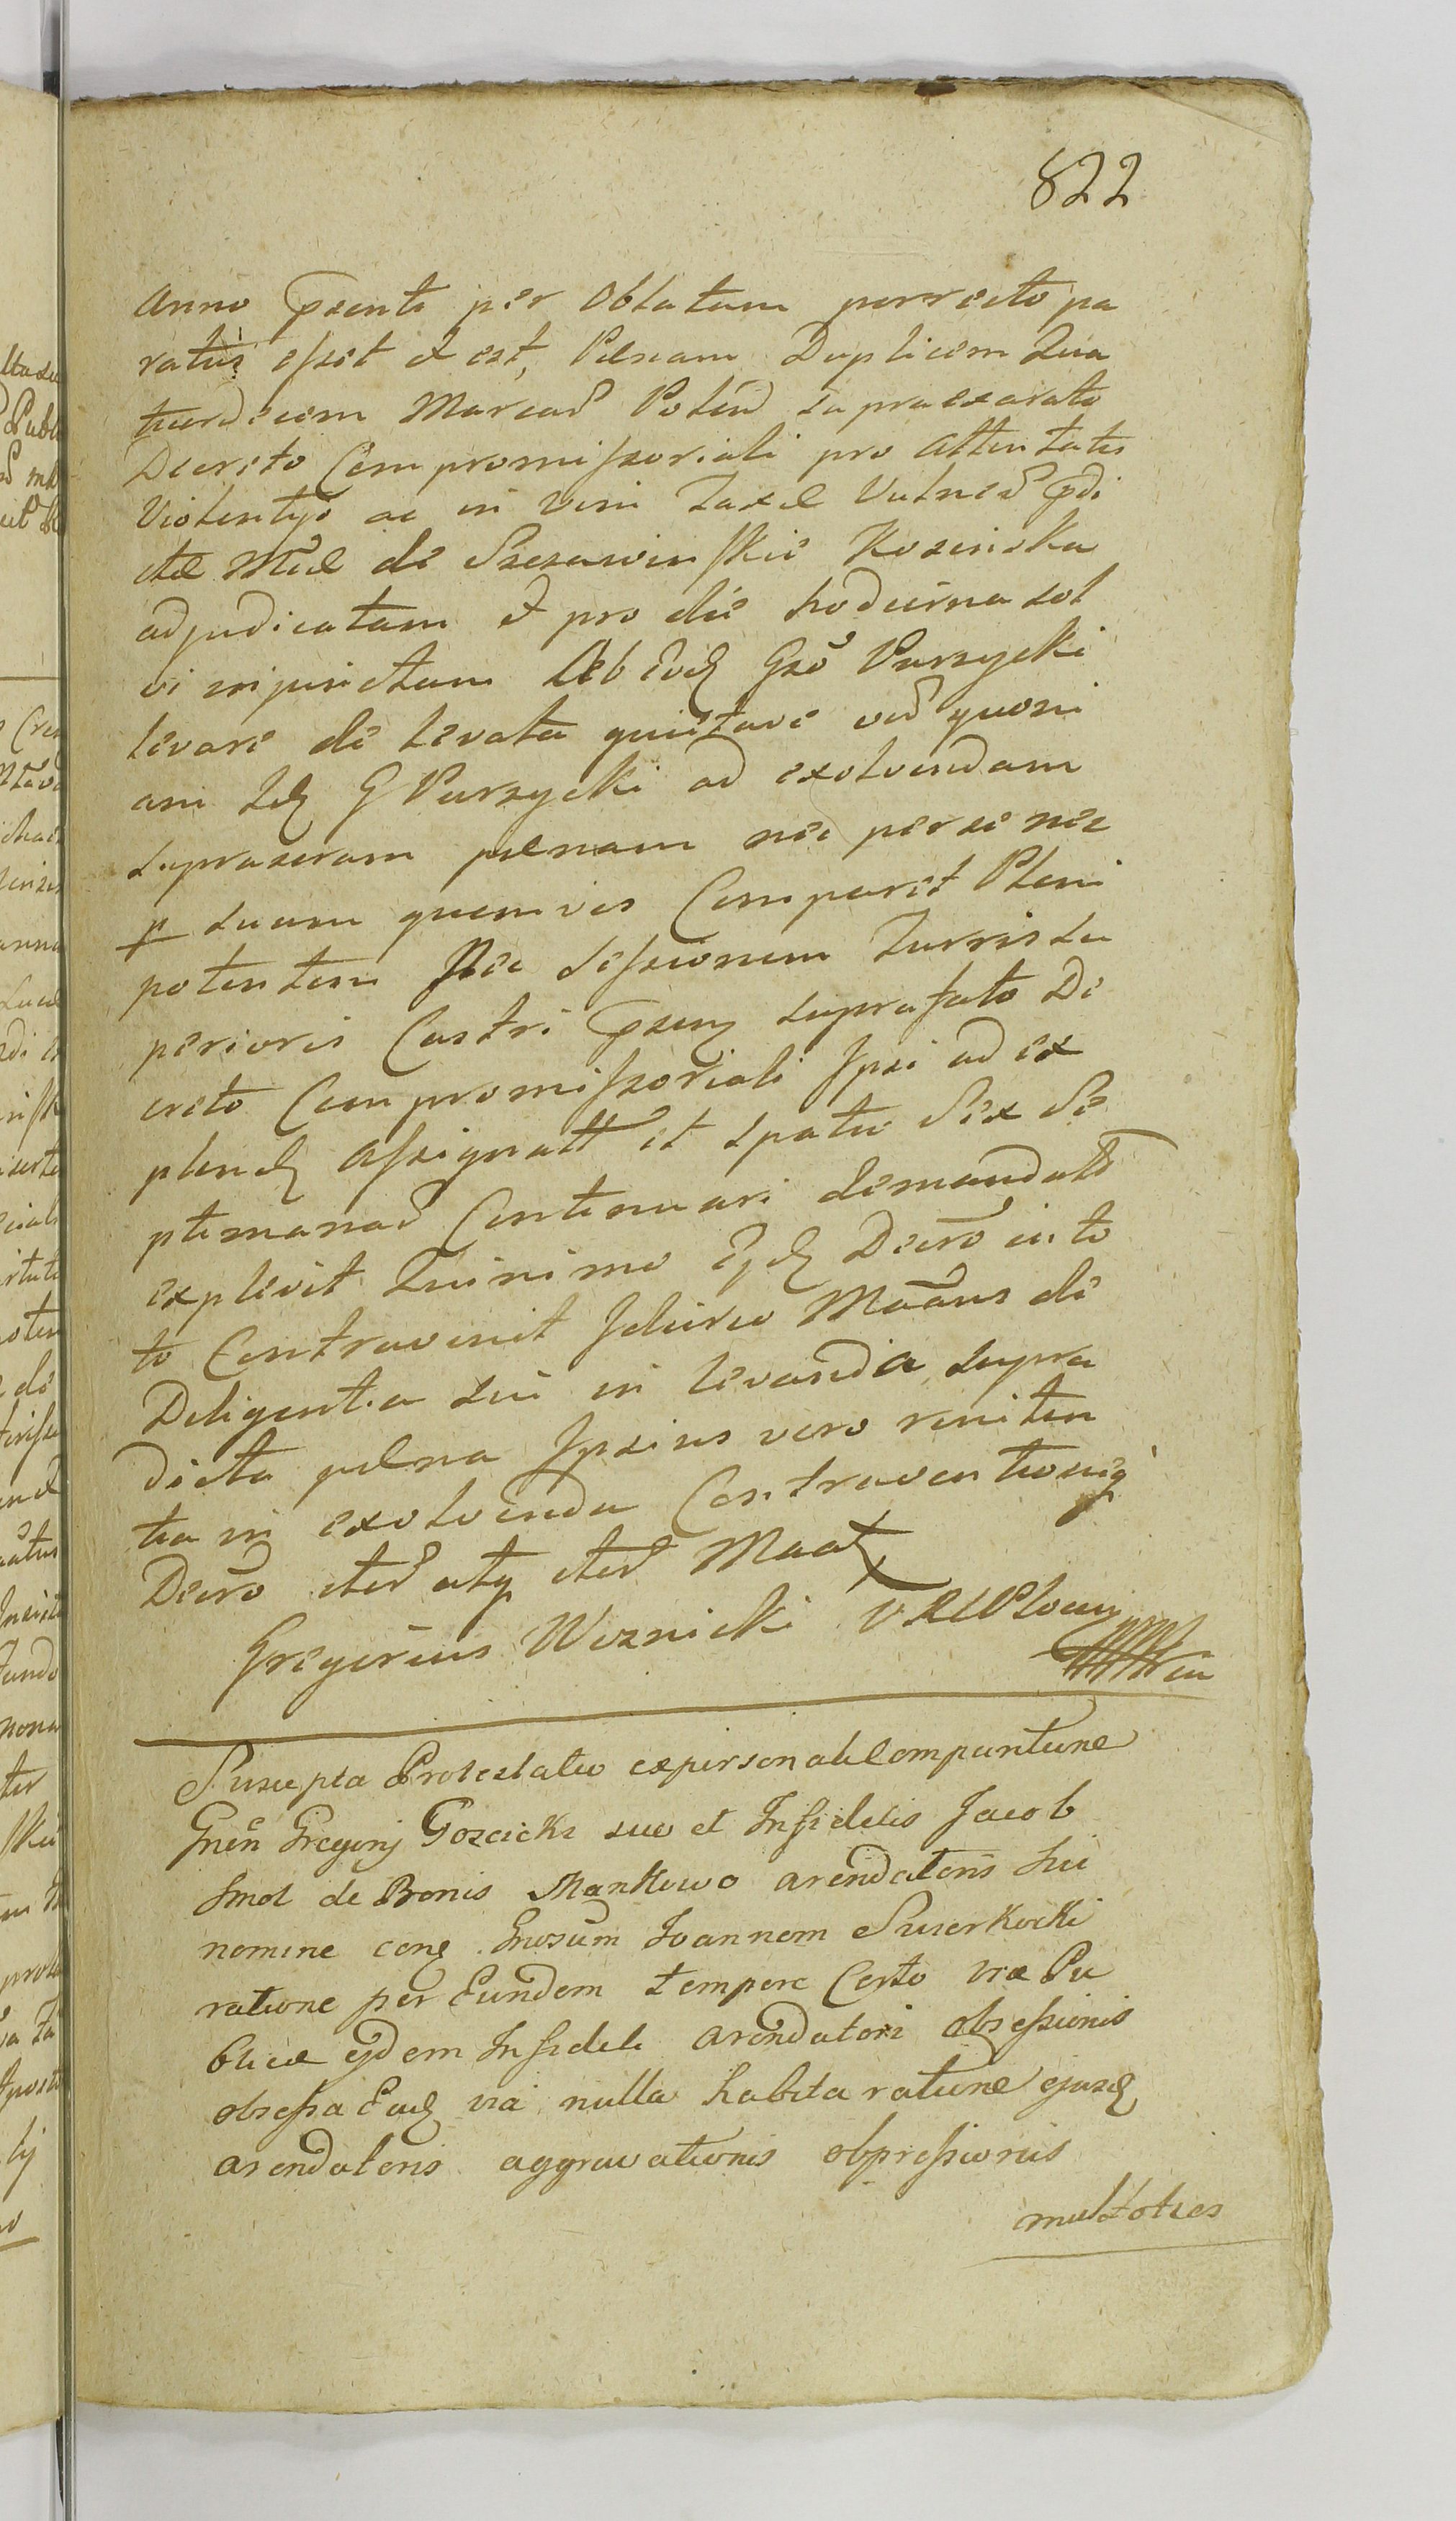 822
anno pzenti per Oblatam porrecto pa
ratus esset et est, Pœnam Duplicem Qua
tuordecim Marcar̃ Polon̄ supraexarato
Decreto Compromissoriali pro attentatis
Violentys ac in vim Taxæ Vulner̃ pdi
ctæ de Szczawinskie Kosinska
adjudicatam et pro die hodierna sol
vi injunctam Ab Eod Gso Purzycki
levare de levata quietare quoni
am G Purzycki ad exolvendam
supraseram pœnam nec per se nec
p suum quemvis Comparet Pleni
potentem Nec sessionem Turris su
perioris Castri psen suprafato De
creto Compromissoriali Ipsi ad ex
plend assignatt et spatio Sex Se
ptimanar̃ Continuari demandatt
explevit Quinimo Decro in to
to Contravenit Idcirco Maãns de
Deligentia sui in levanda supra
dicta pœna Ipsius vero reniten
tia in exolvenda Contraventioneq
Decro iter̃ atq iter̃ Maat
Gregorius Woznicki
Suscepta Protestatio expersonali Comparitione
Gnên Gregorij Goscicki suo et Infidelis Jacob
Smol de Bonis Mankowo arendatoris sui
nomine conq Gnosum Joannem Swierkocki
ratione per Eundem tempore Certo viæ Pu
blicæ ejdem Infideli arendatori obsessionis
obsessa Ead via nulla habita ratione ejusd
arendatoris aggravationis obpressionis
multoties